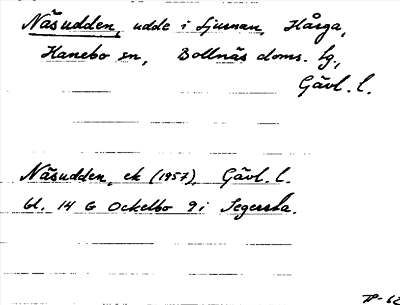 Näsudden, udde i Ljusnan, Hårga,
Hanebo sn, Bollnäs doms. lg,
Gävl. l.
Näsudden, ek (1957), Gävl. l.
bl. 14 G Ockelbo 9 i Segersta.